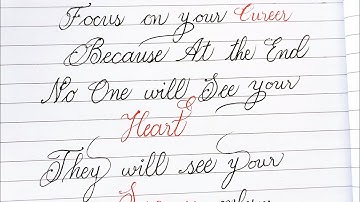 Focus on your Career
Because At the End
No One will See your
Heart
They will see your